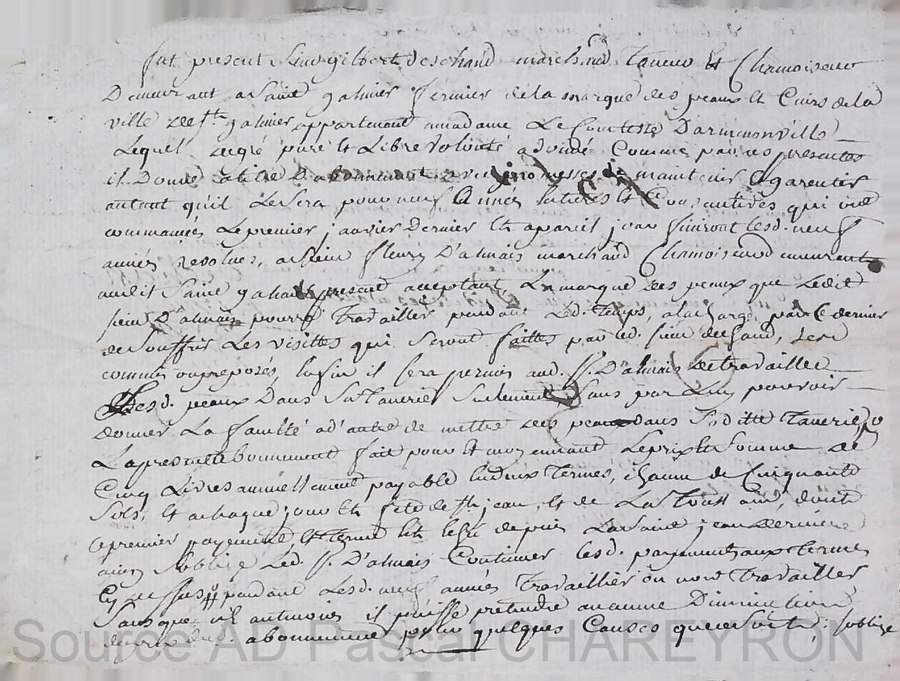 fut present Sieur gilbert deschaud marchand Taneur Et Chamoiseur
Demeurant a Saint galmier fermier de la marque des peaux Et Cuirs de la
ville de St galmier appartenant a madame Le Comtesse Darmenonville
Lequel de gré pure Et Libre volonté a donné Comme par ces presentes
il Donne a titre D'abonnement avec promesses de maintenir Et garentir
autant qu'il Le Sera pour neuf Années Entieres Et Consecutives qui ont
commancés Le premier janvier dernier Et a pareil jour finiront Lesd. neuf
années revolues, a Sieur fleury D'almais marchand Chamoiseur demeurant
audit Saint galmier present acceptant, La marque des peaux que Ledit
Sieur D'almais pourra Travailler pendant Led. Temps, a la charge par Ce dernier
de Souffrir Les visittes qui Seront faittes par led. Sieur deschaud, Ses
commis ou preposés, Enfin il Sera permis aud. Sr. D'almais de travailler
Lesd. peaux Dans Sa Tannerie Seulement Sans par Luy pouvoir
donner La faculté a d'autre de mettre des peaux dans Saditte Tanerie,
La presente abonnement fait pour Et moyennant Le prix Et Somme de
Cinq Livres annuellement payable En deux Termes, Chacun de Cinquante
Sols, Et a chaque jour Et fete de St jean, Et de La Toussaint, dont
Le premier payement Et terme Est Echu depuis La Saint jean derniere
ainsy S'oblige Led. Sr. D'almais Continuer Lesd. payements aux Termes
Cy dessus pendant Lesd. neuf années Travaillier ou non Travailler
Sans que neantmoins il puisse pretendre aucune Diminution
du prix dud. abonnement pour quelques Causes que ce Soit, S'oblige
Source AD Pascal CHAREYRON